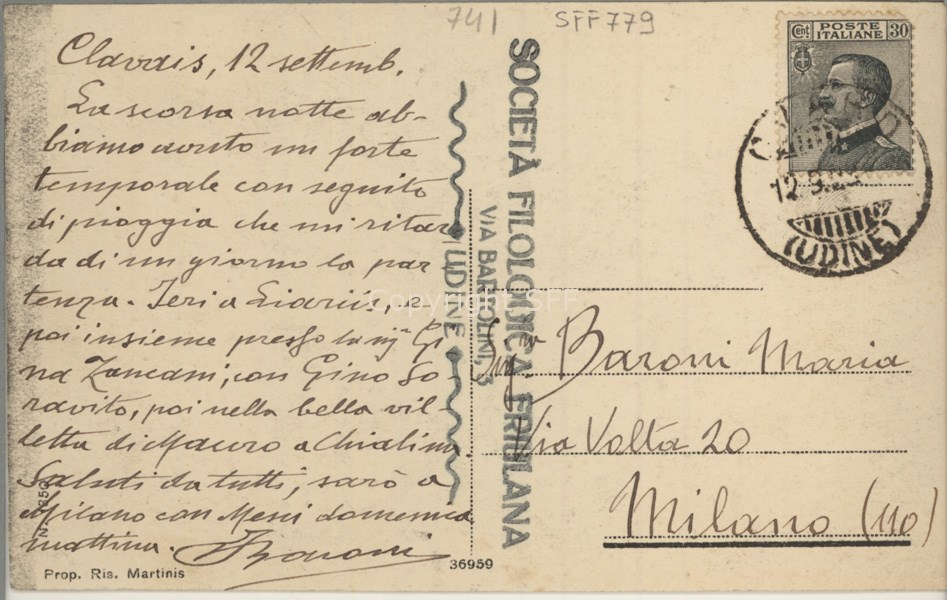 741
SFF779
Clavais, 12 settemb.
La scorsa notte ab-
biamo avuto un forte
temporale con seguito
di pioggia che mi ritar
da di un giorno la par
tenza. Ieri a Liariis, e
poi insieme presso la Gi
na Zancani, con Gino So
ravito, poi nella bella vil-
letta di Mauro a Chialina.
Saluti da tutti, sarò a
Milano con Meni domenica
mattina. Baroni
Prop. Ris. Martinis
36959
SOCIETÀ FILOLOGICA FRIULANA
VIA BARTOLINI, 3
UDINE
Copyright SFF
Cent. POSTE ITALIANE 30
12.9
(UDINE)
Baroni Maria
Via Volta 20
Milano (110)